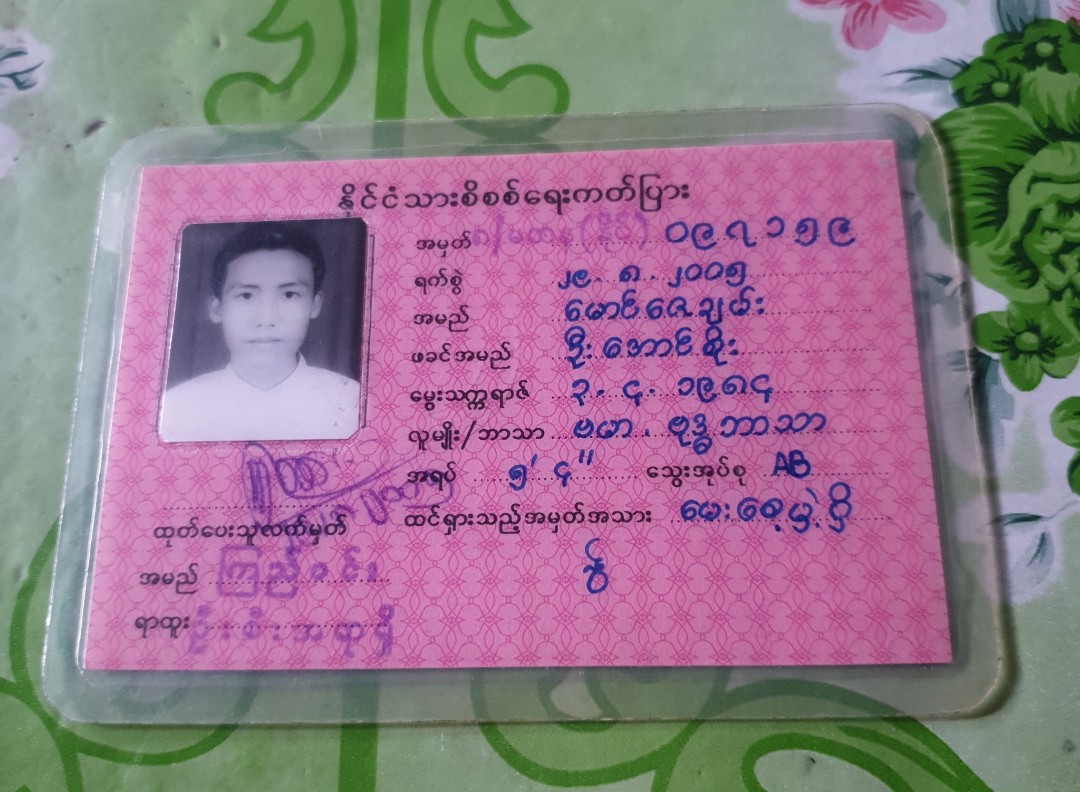 နိုင်ငံသားစိစစ်ရေးကတ်ပြား
အမှတ် ၈/မတန(နိုင်) ၀၉၇၁၅၉
ရက်စွဲ ၂၉.၈.၂၀၀၅
အမည် မောင်ဇေချမ်း
ဖခင်အမည် ဦးအောင်စိုး
မွေးသက္ကရာဇ် ၃.၄.၁၉၈၄
လူမျိုး/ဘာသာ ဗမာ၊ ဗုဒ္ဓဘာသာ
အရပ် ၅' ၄" သွေးအုပ်စု AB
ထင်ရှားသည့်အမှတ်အသား မေးစေ့မှဲ့ရှိ
ထုတ်ပေးသူလက်မှတ်
အမည် ကြည်ဝင်း
ရာထူး ဦးစီးအရာရှိ